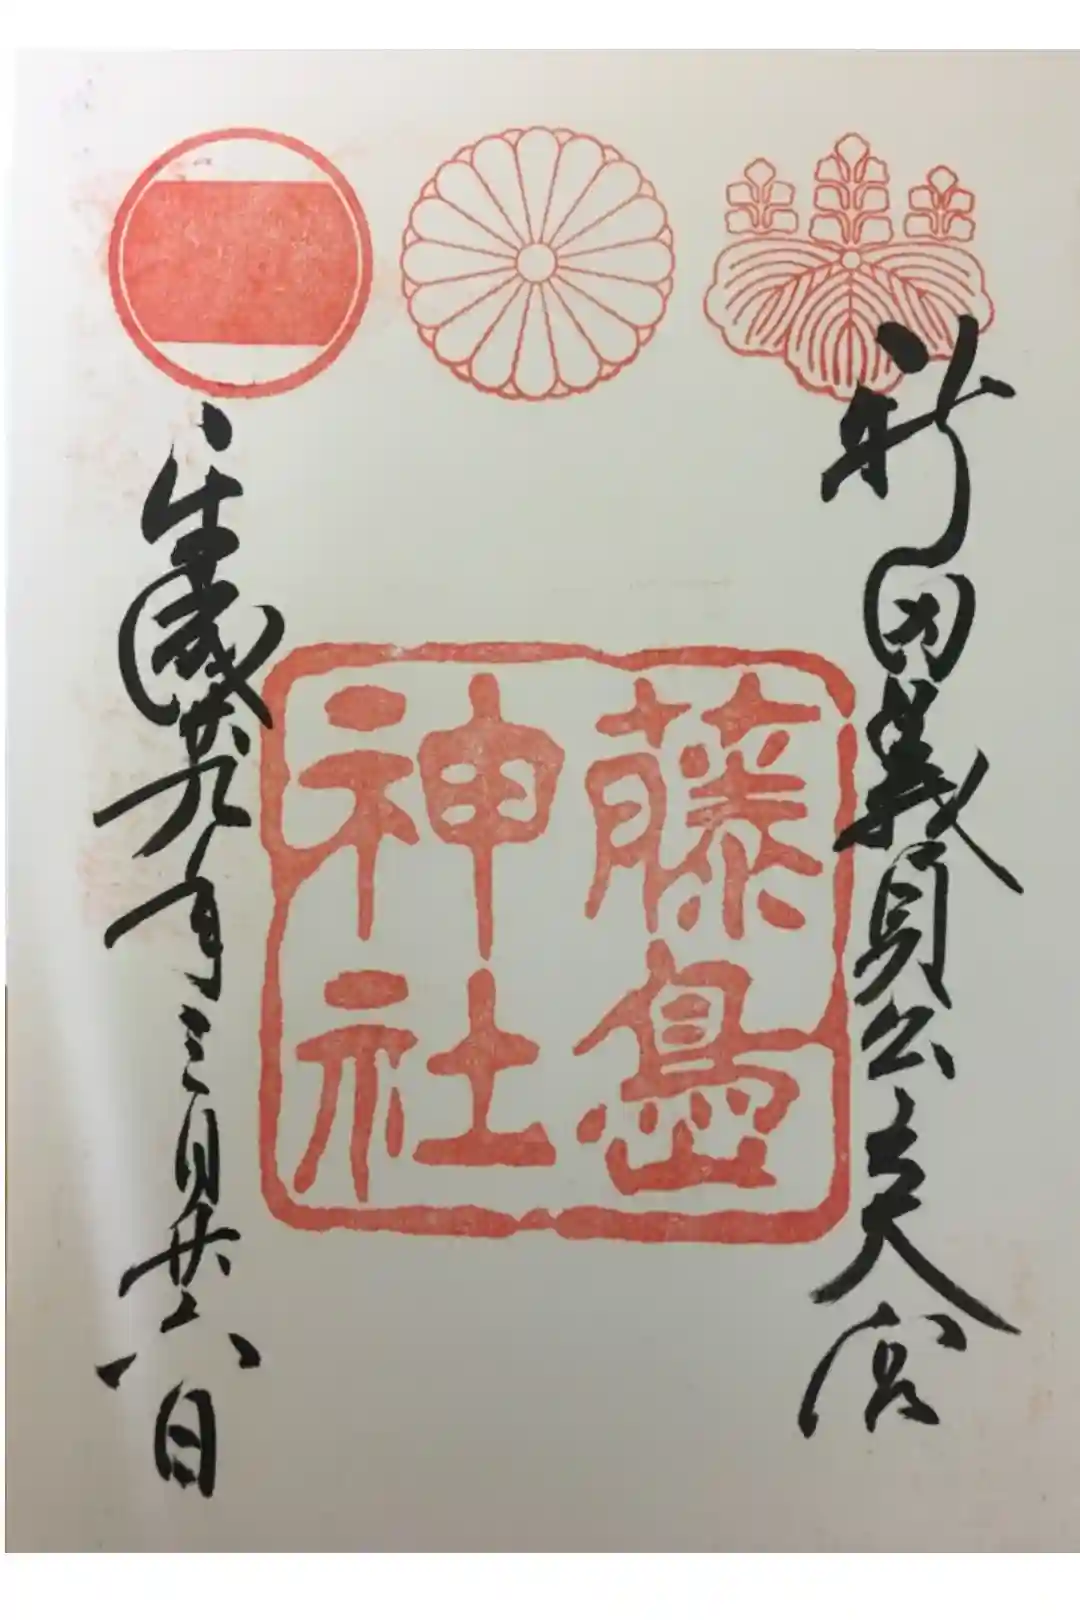 新田義貞公
宮
藤島
神社
平成廿九年三月廿六日